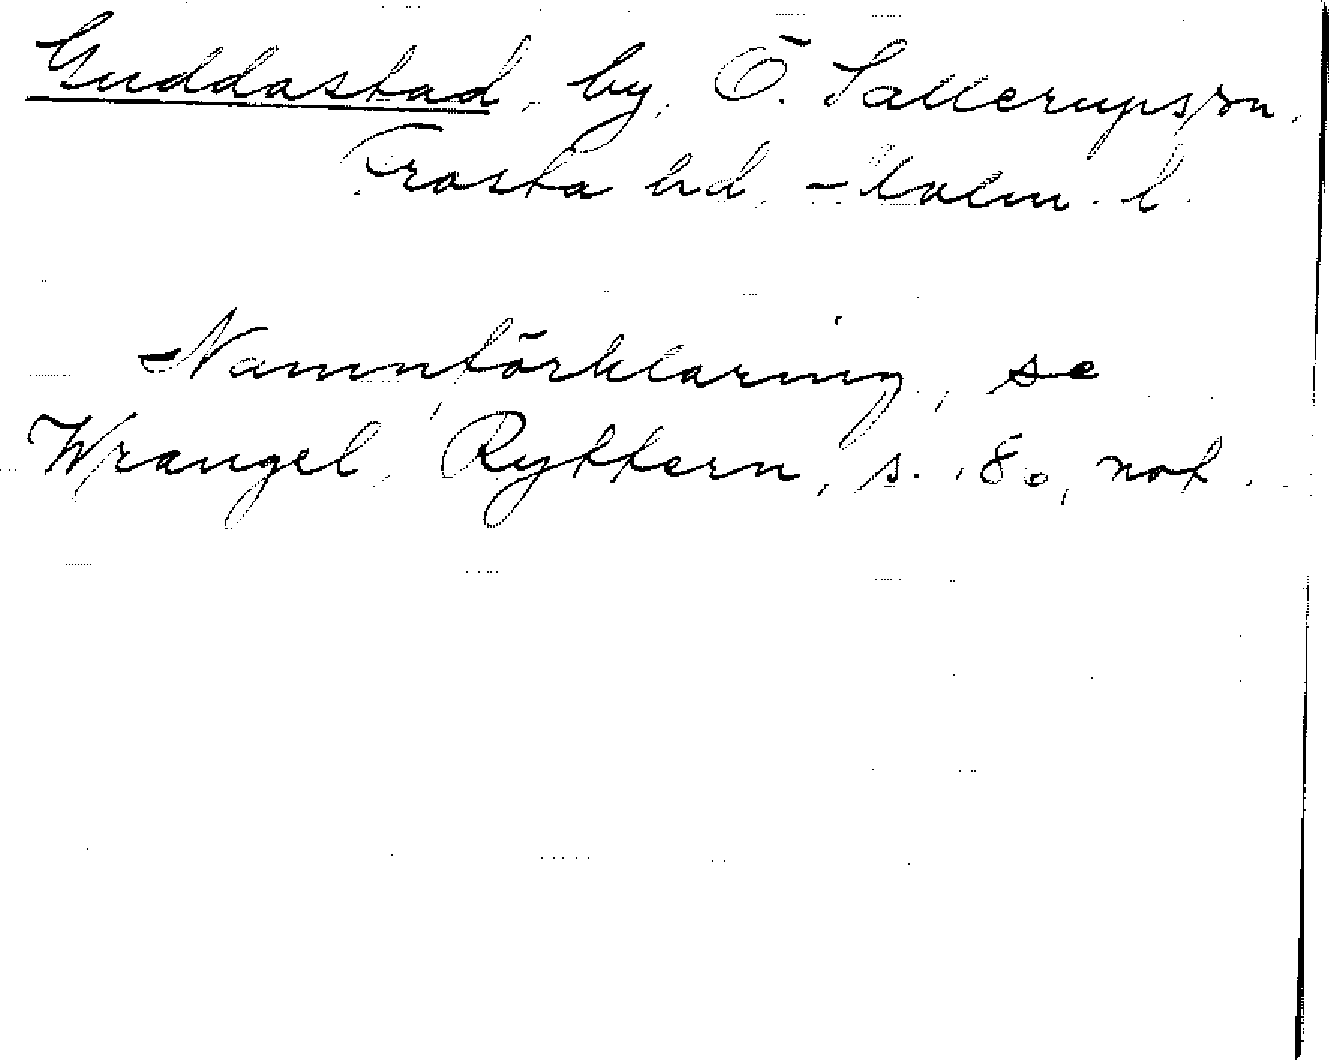 Guddastad, by, Ö. Sallerups sn,
Frosta hd, Malm. l.
Namnförklaring, se
Wrangel, Ryttern, s. 80, not.